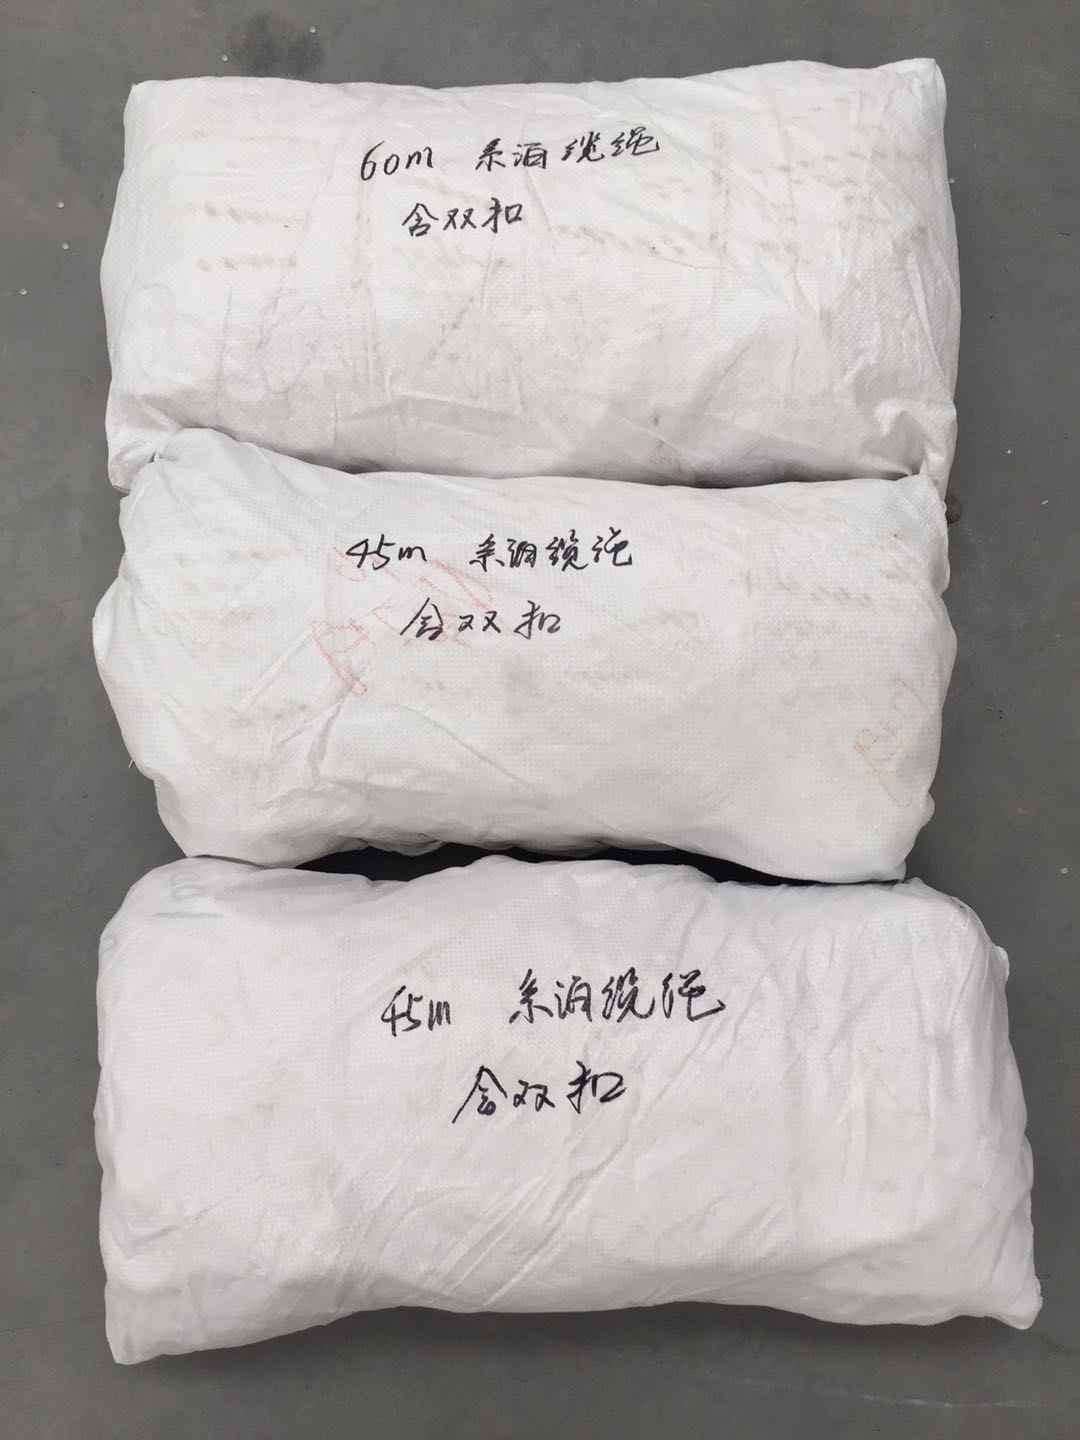 60m 系泊缆绳
含双扣
45m 系泊缆绳
含双扣
45m 系泊缆绳
含双扣